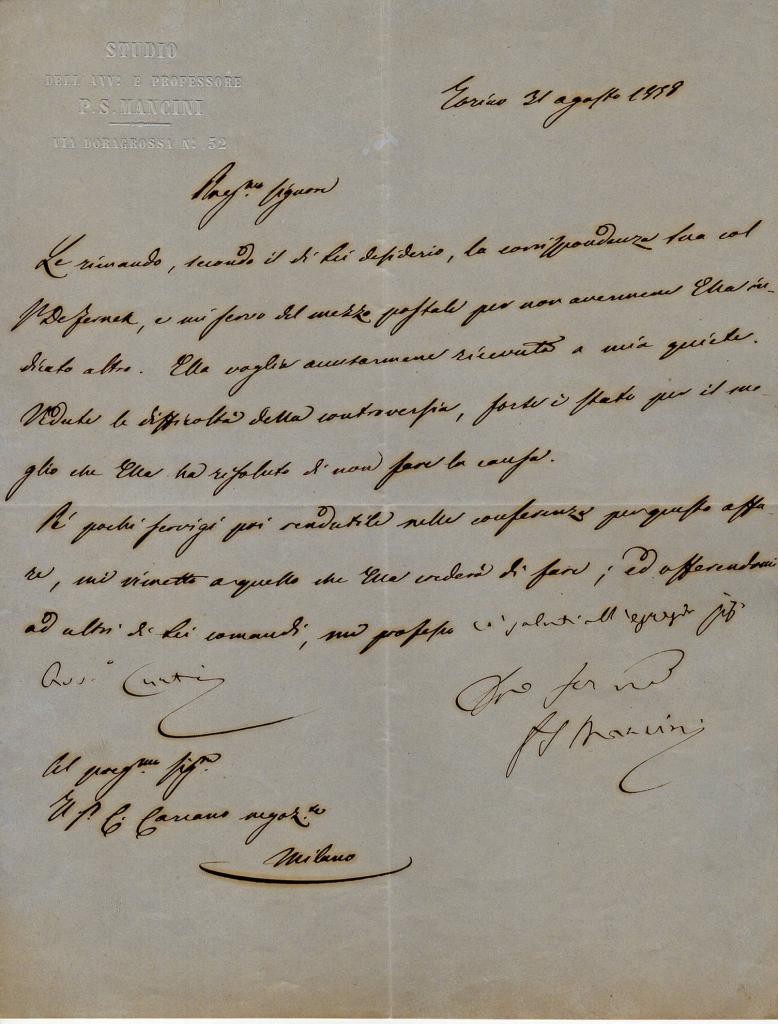 STUDIO
DELL'AVV: E PROFESSORE
P. S. MANCINI
VIA DORAGROSSA N: 52
Torino 31 agosto 1858
Preg.mo Signore
Le rimando, secondo il di Lei desiderio, la corrispondenza sua col
e mi servo del mezzo postale per non avermene Ella in-
dicato altro. Ella voglia accusarmene ricevuta a mia quiete.
Vedute le difficoltà della controversia, forse è stato per il me-
glio che Ella ha risoluto di non fare la causa.
Pei pochi servigi poi rendutile nelle conferenze per questo affa-
re, mi rimetto a quello che Ella crederà di fare; ed offerendomi
ad altri di Lei comandi, mi professo co' saluti all'egregio
Avv.o Curti
Dev.o
PS Mancini
Al preg.mo Sig.r
Il Sr. C. negoz.te
Milano